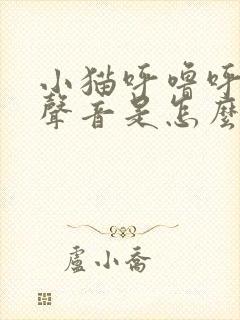 小猫呼噜呼
聲音是怎麼
盧小喬